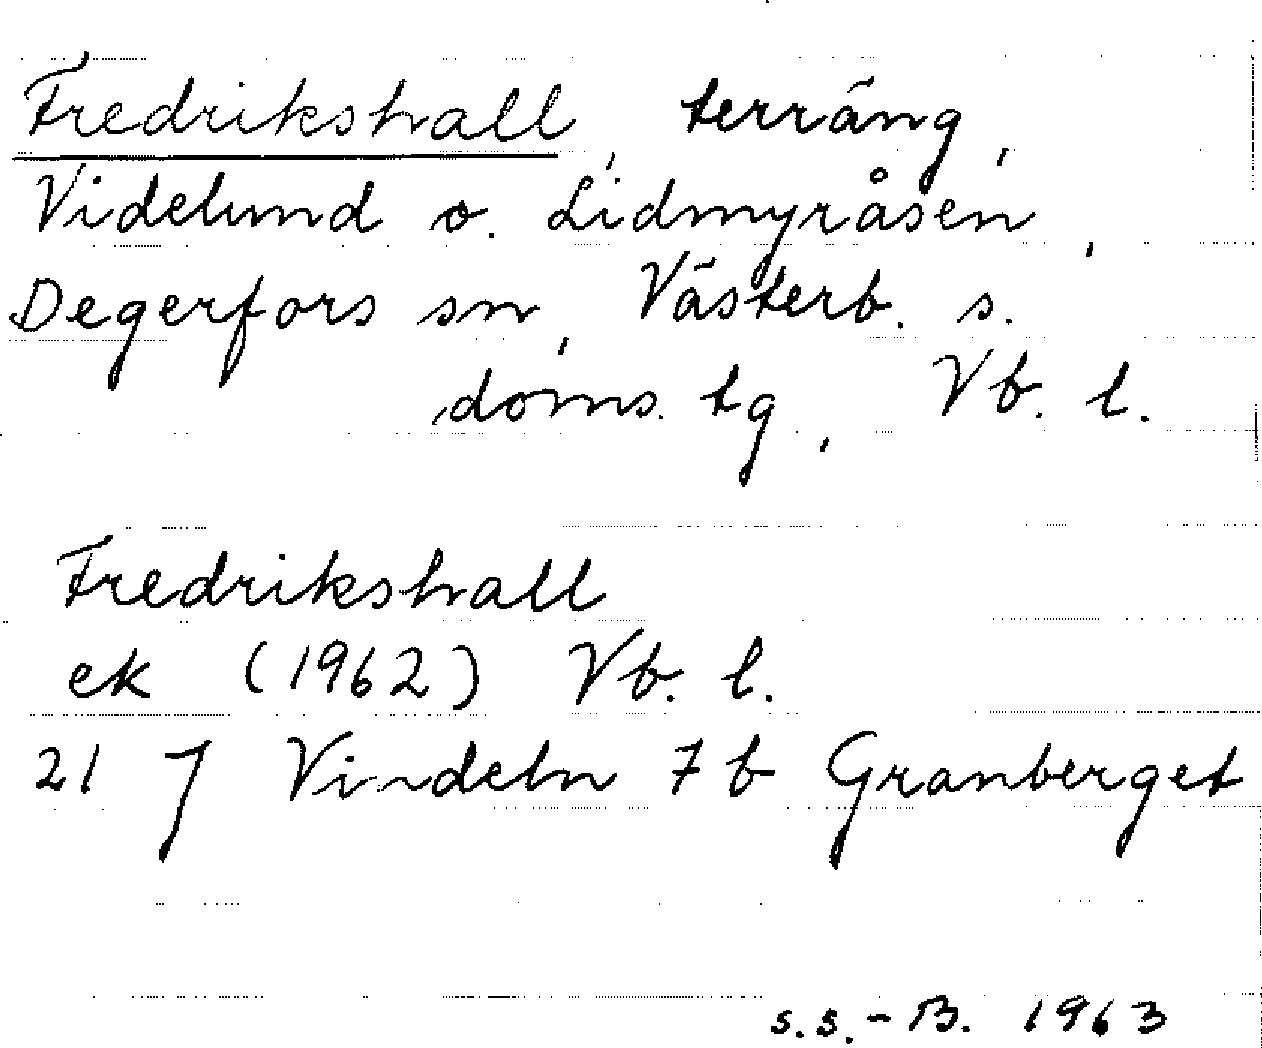 Fredrikshall, terräng,
Videlund o. Lidmyråsen,
Degerfors sn, Västerb. s.
doms. tg, Vb. l.
Fredrikshall
ek (1962) Vb. l.
21 J Vindeln 7 b Granberget
S.S.-B. 1963